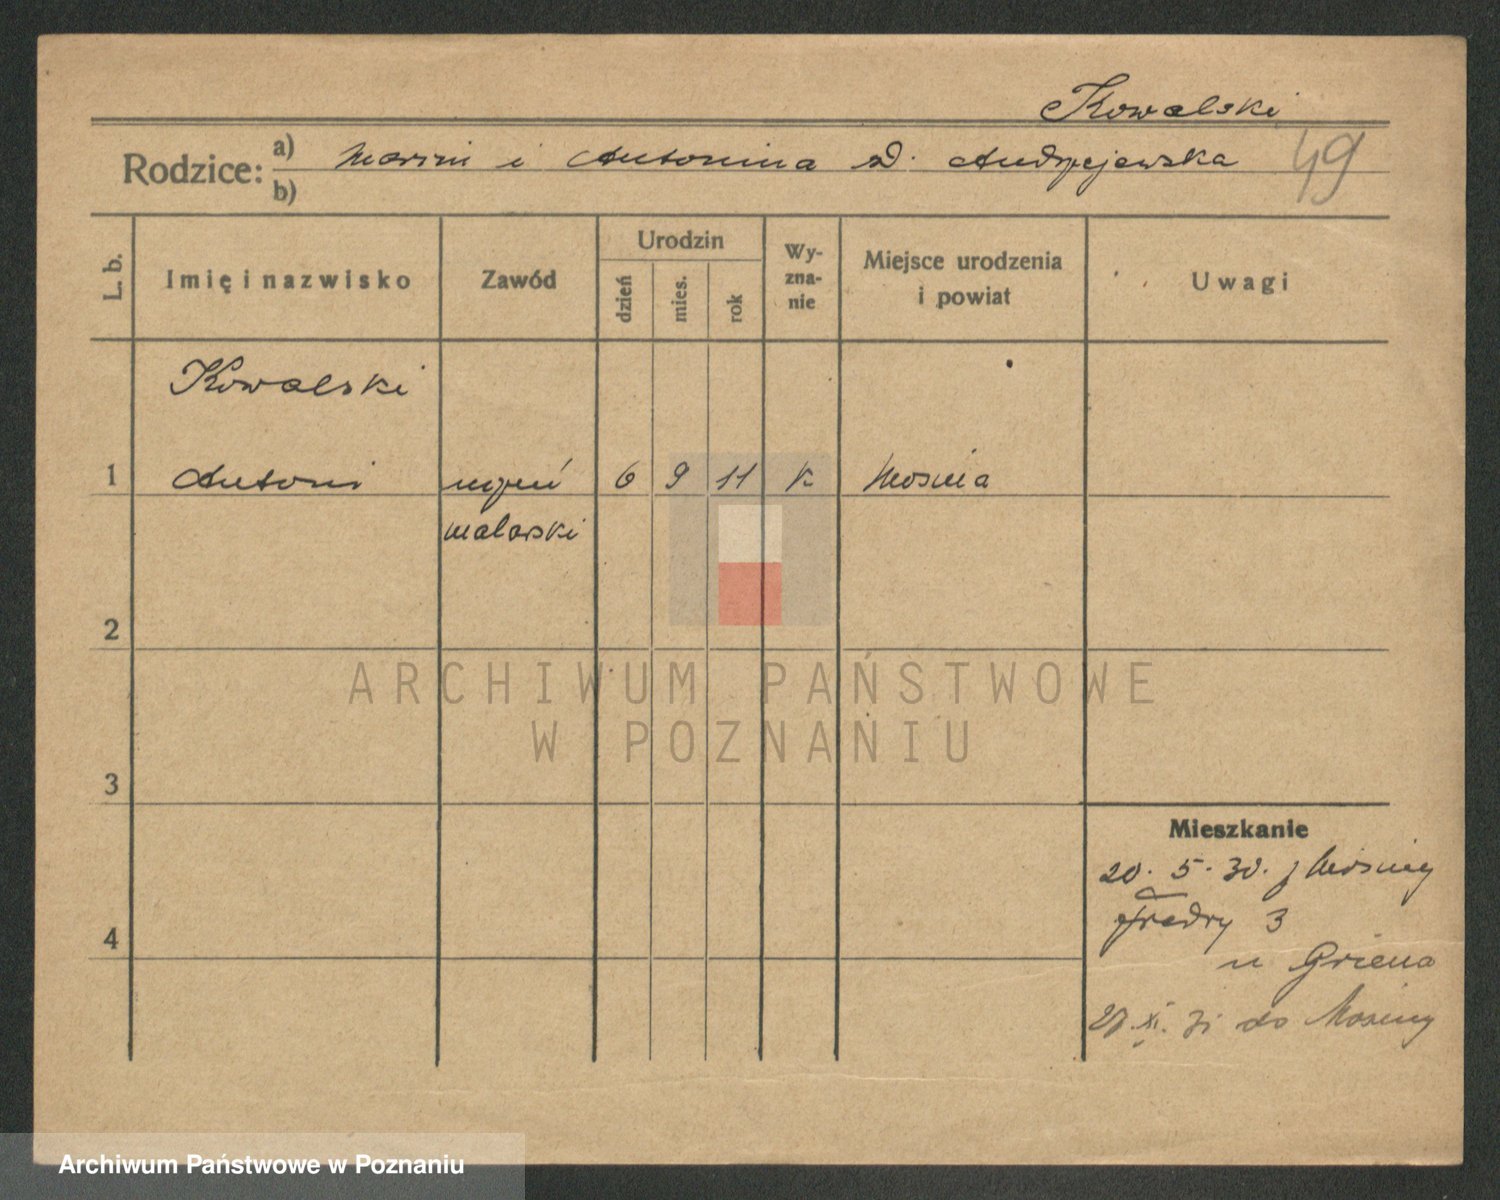 Kowalski
Rodzice: a) Marcin i Antonina d. Andrzejewska 49
b)
L. b. Imię i nazwisko Zawód Urodzin dzień mies. rok Wy-zna-nie Miejsce urodzenia i powiat Uwagi
Kowalski
1 Antoni uczeń 6 9 11 k Mosina
malarski
2
ARCHIWUM PAŃSTWOWE
W POZNANIU
3
Mieszkanie
20. 5. 30. z Mosiny
Fredry 3
4
u Griena
27. XI. 31 do Mosiny
Archiwum Państwowe w Poznaniu